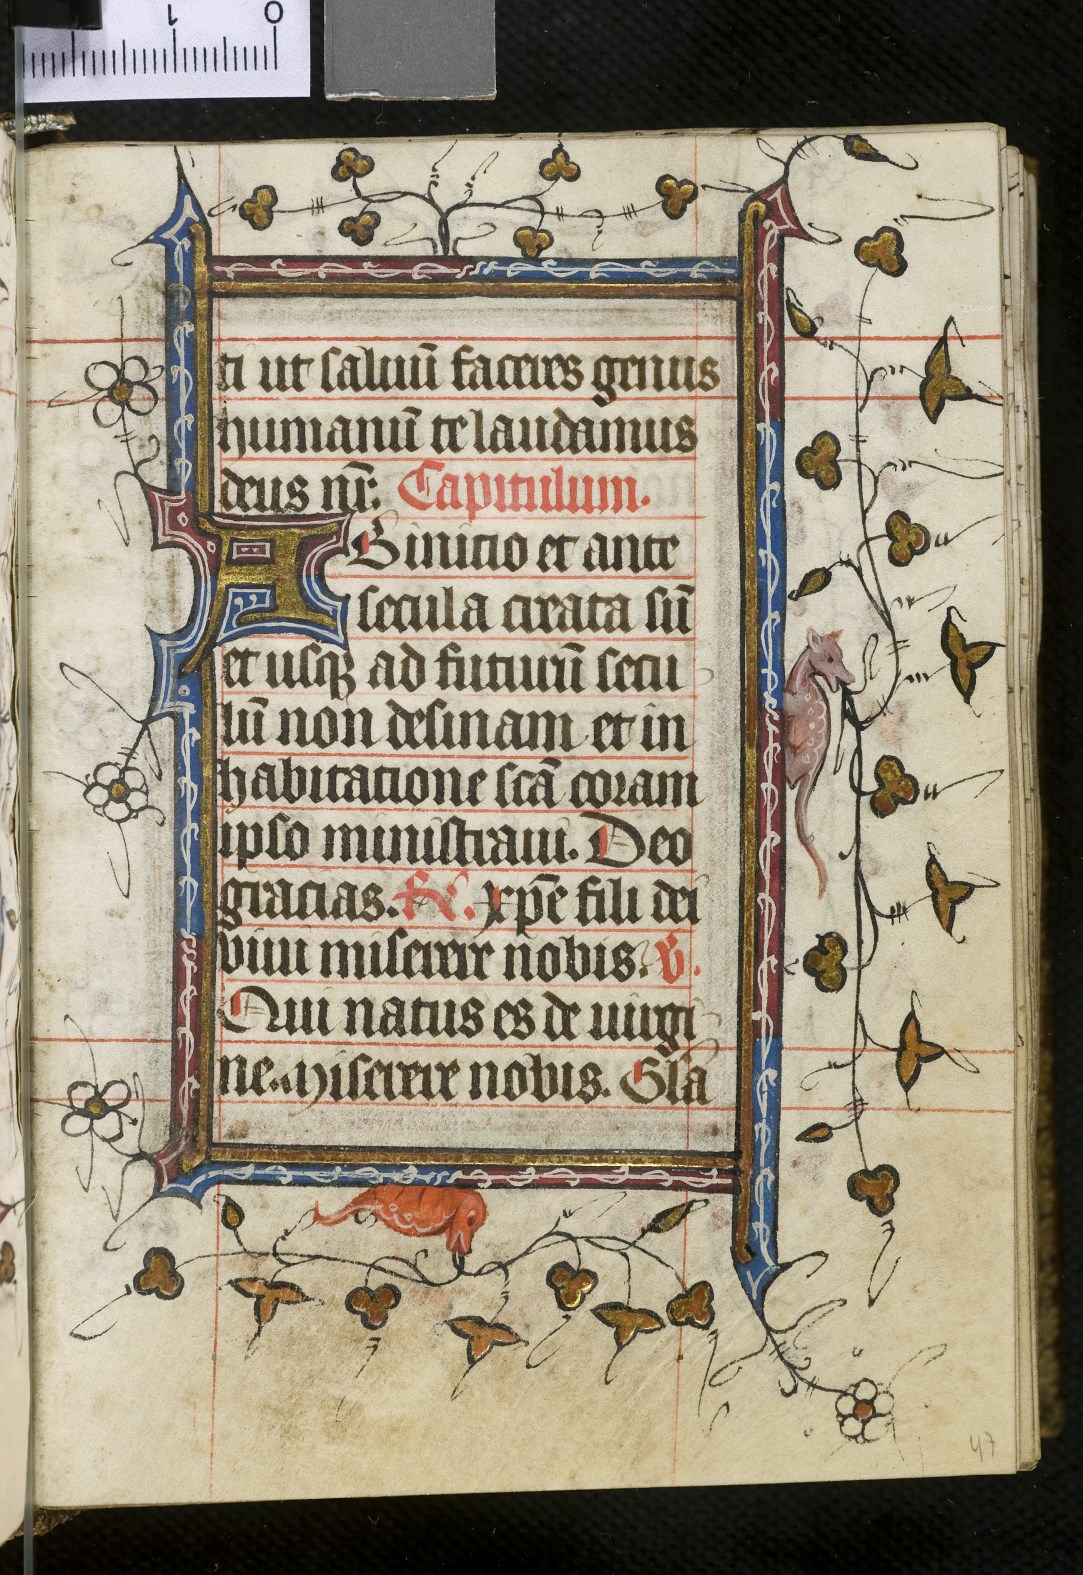 1 0
ti ut saluū faceres genus
humanū te laudamus
deus nr̄. Capitulum.
AB inicio et ante
secula creata sū
et usqꝫ ad futurū secu
lū non desinam et in
habitatione scā coram
ipso ministraui. Deo
gracias. R̸. xp̄e fili dei
viui miserere nobis. V̸.
Qui natus es de uirgi
ne. Miserere nobis. Gła
47